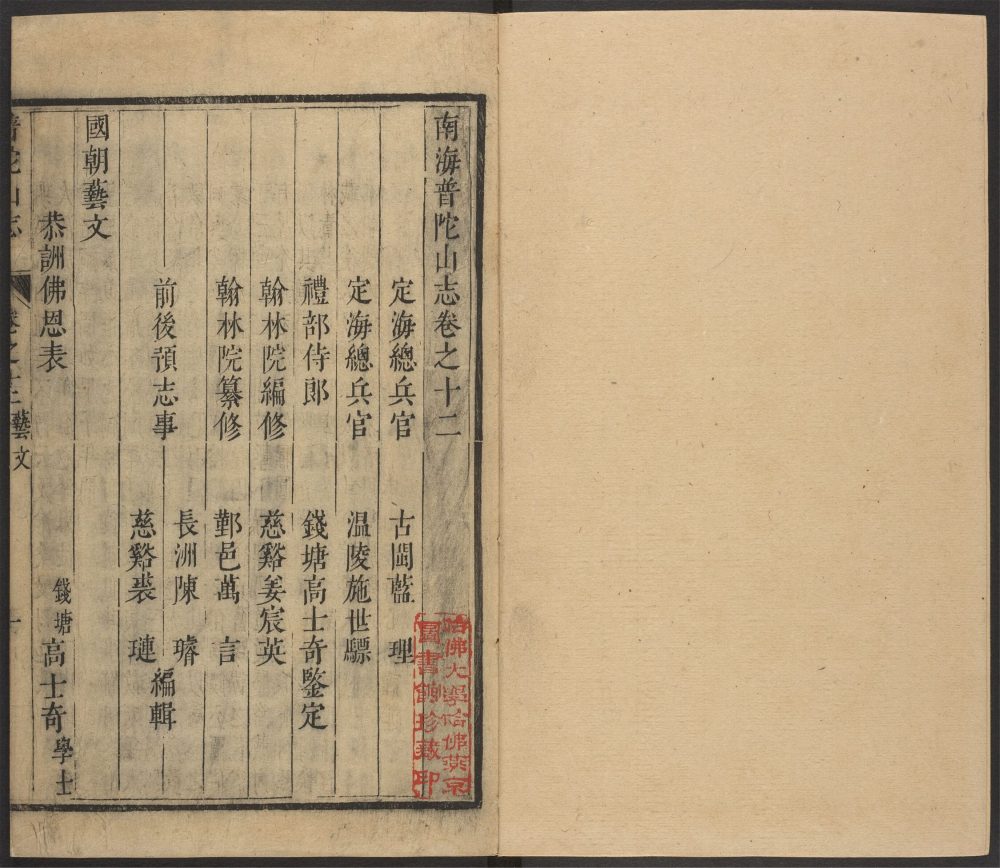 南海普陀山志卷之十二
定海總兵官 古閩藍 理
定海總兵官 温陵施世驃
禮部侍郎 錢塘高士奇鑒定
翰林院編修 慈谿姜宸英
翰林院纂修 鄞邑萬 言
長洲陳 璿
前後預志事 編輯
慈谿裘 璉
國朝藝文
恭詶佛恩表 錢塘高士奇學士
普陀山志 卷之十二 藝文 一
哈佛大學哈佛燕京
圖書館珍藏印